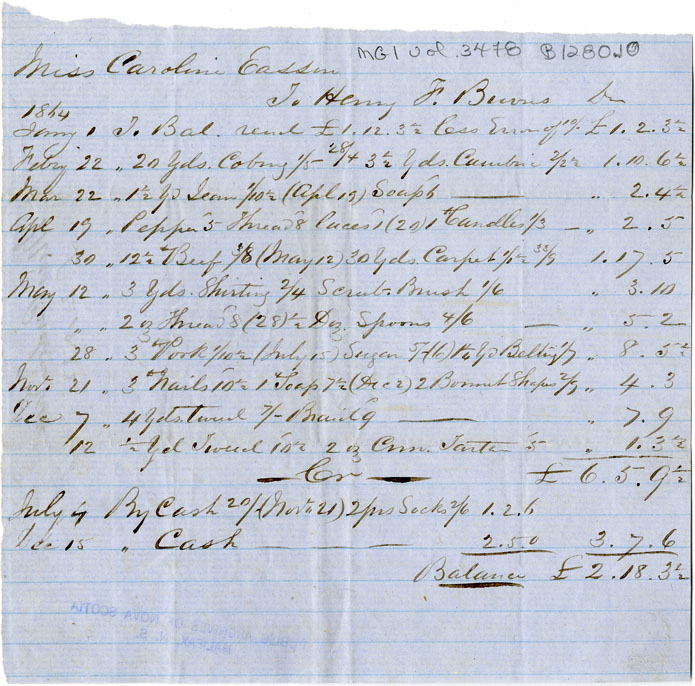 MG1 Vol. 3478 B1280
Miss Caroline Easson
To Henry F. Dr
1864
Jany 1 To Bal. rend £1.12.3½ less Error of 10/- £1.2.3½
Feby 22 " 20 Yds. Coburg 1/5 28/4 3½ Yds. Cambric 2/2½ 1.10.6½
Mar 22 " 1½ Yd Jean 1/10½ (Apl 19) Soap 6 — " 2.4½
Apl 19 " Pepper 5 Thread 8 laces 1 (20) 1 lb Candles 1/3 — " 2.5
30 " 12½ lb Beef 3/8 (May 12) 30 Yds. Carpet 1/1½ 33/9 1.17.5
May 12 " 3 Yds. Shirting 2/4 Scrub. Brush 1/6 " 3.10
" " 2 oz Thread 8 (28) ½ Doz Spoons 4/6 — " 5.2
28 " 3 lb Pork 1/10½ (July 15) Sugar 5/- (16) Yd Belting " 8.5½
Nov. 21 " 3 lb Nails 10½ 1 lb Soap 7½ (Dec 2) 2 Bonnet Shapes 2/9 " 4.3
Dec 7 " 4 Yds. tweed 7/- Braid 9 — " 7.9
12 " ½ Yd Tweed 10½ 2 oz Crm. Tartar 5 " 1.3½
— Cr — £ 6.5.9½
July 4 By Cash 20/- (Nov. 21) 2 prs Socks 2/6 1.2.6
Dec 15 " Cash — — 2.5.0 3.7.6
Balance £ 2.18.3½
PUBLIC ARCHIVES OF NOVA SCOTIA
HALIFAX, N. S.